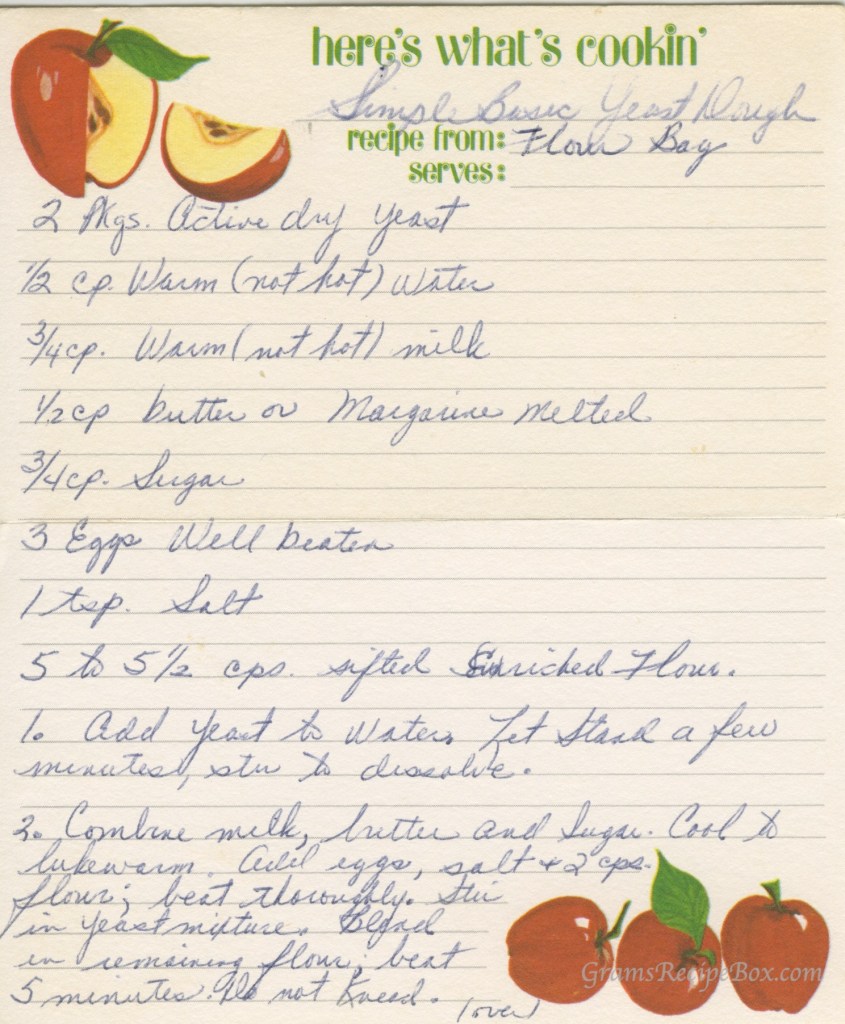 here's what's cookin'
Simple Basic Yeast Dough
recipe from: Flour Bag
serves:
2 Pkgs. Active dry yeast
1/2 cp. Warm (not hot) Water
3/4 cp. Warm (not hot) milk
1/2 cp butter or Margarine Melted
3/4 cp. Sugar
3 Eggs Well beaten
1 tsp. Salt
5 to 5 1/2 cps. sifted Enriched Flour.
1. Add Yeast to Water. Let Stand a few
minutes, stir to dissolve.
2. Combine milk, butter and Sugar. Cool to
lukewarm. Add eggs, salt + 2 cps.
flour; beat thoroughly. Stir
in yeast mixture. Blend
in remaining flour; beat
5 minutes. Do not Knead. (over)
GramsRecipeBox.com